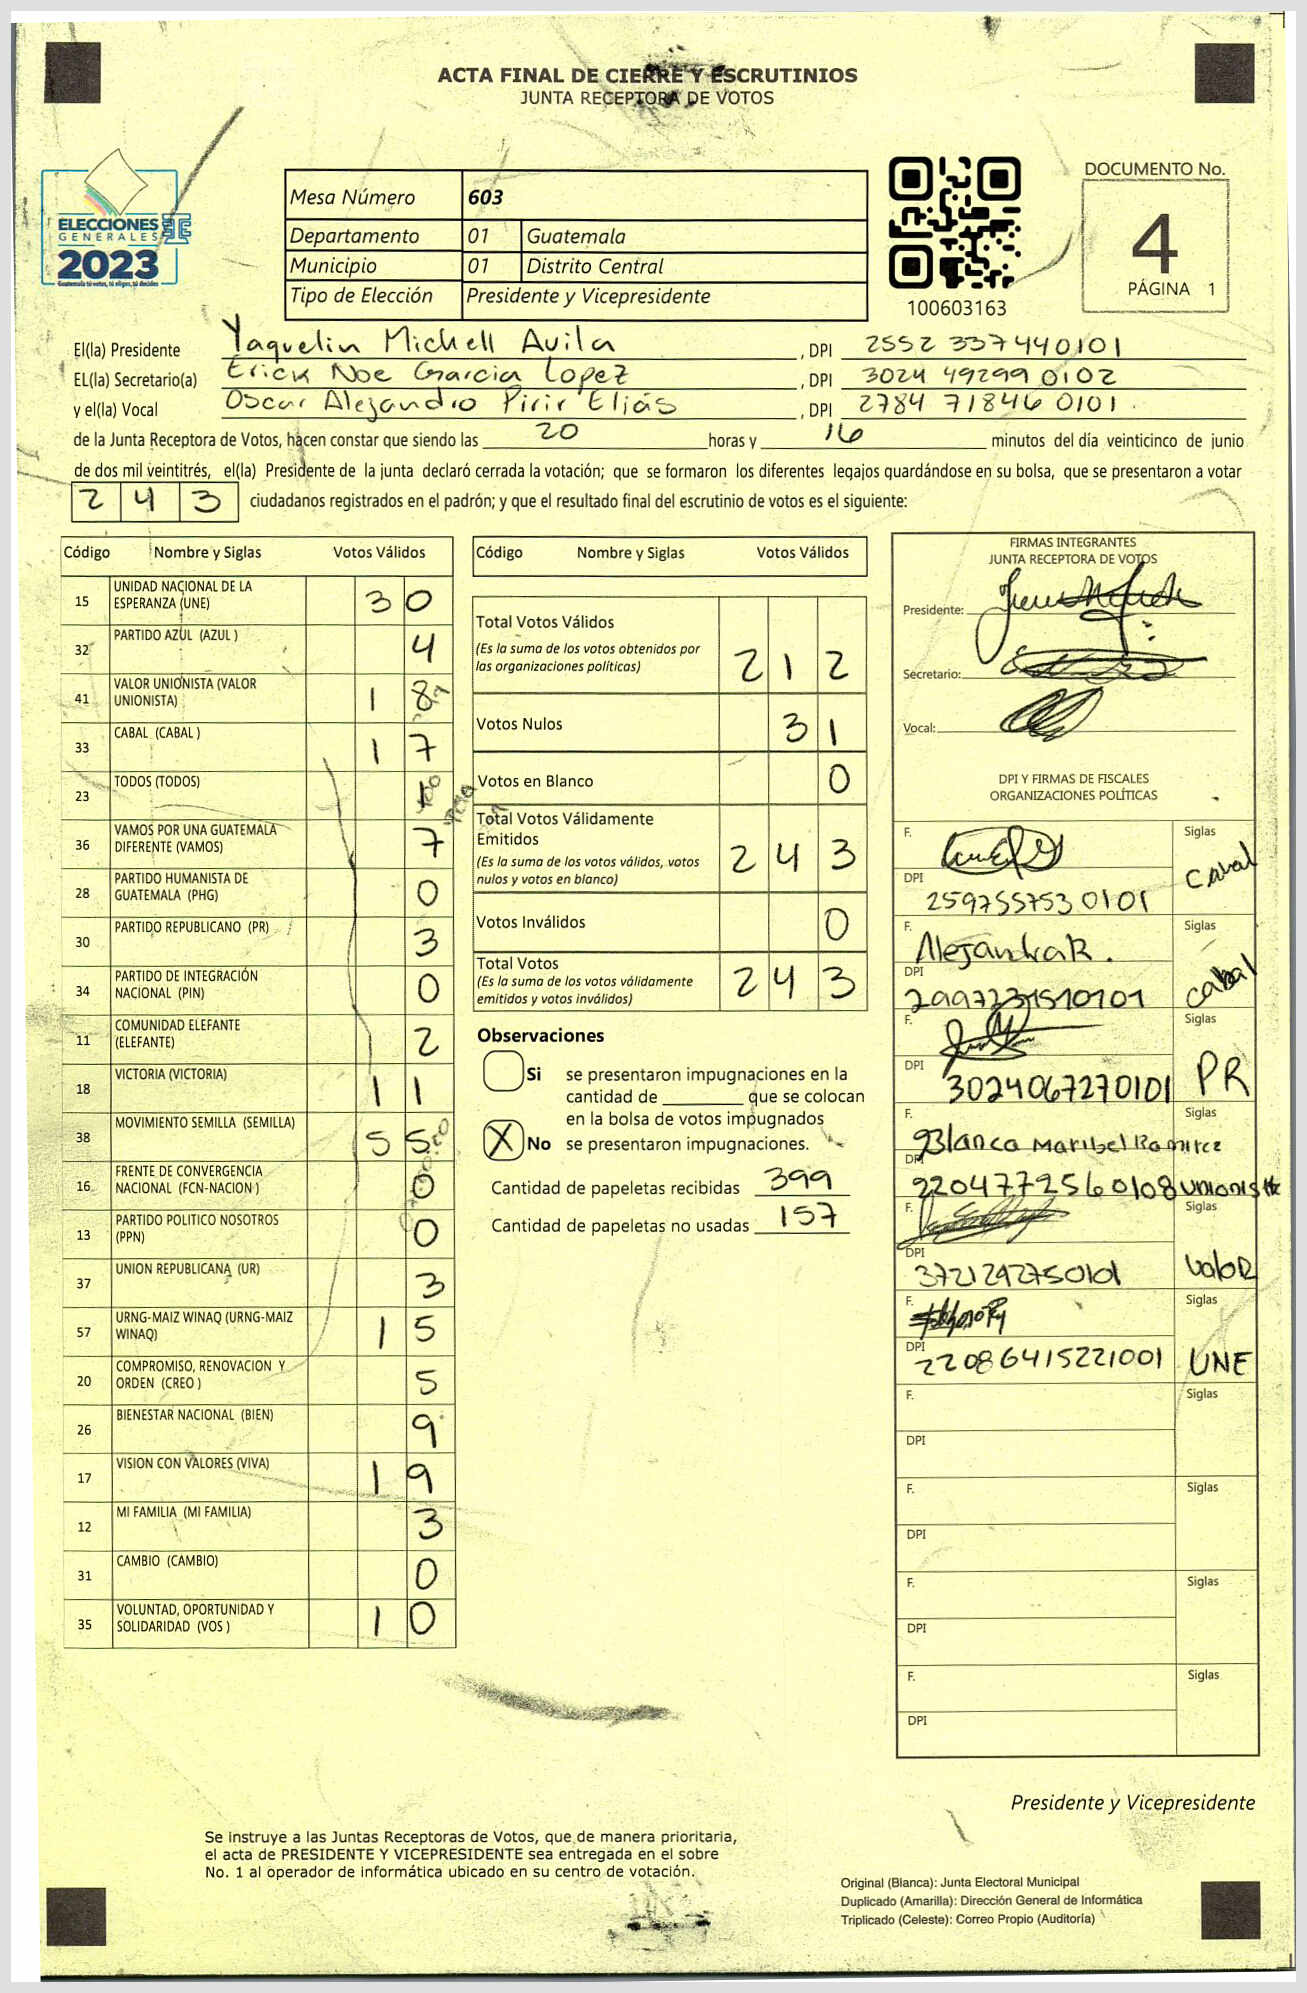 ACTA FINAL DE CIERRE Y ESCRUTINIOS
JUNTA RECEPTORA DE VOTOS
ELECCIONES
GENERALES
2023
Guatemala tú votas, tú eliges, tú decides
Mesa Número 603
Departamento 01 Guatemala
Municipio 01 Distrito Central
Tipo de Elección Presidente y Vicepresidente
100603163
DOCUMENTO No.
4
PÁGINA 1
El(la) Presidente Yaquelin Michell Avila, DPI 2552 337440101
EL(la) Secretario(a) Erick Noe Garcia Lopez, DPI 3024 49299 0102
y el(la) Vocal Oscar Alejandro Pirir Eliás, DPI 2784 71846 0101
de la Junta Receptora de Votos, hacen constar que siendo las 20 horas y 16 minutos del día veinticinco de junio
de dos mil veintitrés, el(la) Presidente de la junta declaró cerrada la votación; que se formaron los diferentes legajos guardándose en su bolsa, que se presentaron a votar
243 ciudadanos registrados en el padrón; y que el resultado final del escrutinio de votos es el siguiente:
Código Nombre y Siglas Votos Válidos
15 UNIDAD NACIONAL DE LA ESPERANZA (UNE) 30
32 PARTIDO AZUL (AZUL ) 4
41 VALOR UNIONISTA (VALOR UNIONISTA) 18
33 CABAL (CABAL ) 17
23 TODOS (TODOS) 1
36 VAMOS POR UNA GUATEMALA DIFERENTE (VAMOS) 7
28 PARTIDO HUMANISTA DE GUATEMALA (PHG) 0
30 PARTIDO REPUBLICANO (PR) 3
34 PARTIDO DE INTEGRACIÓN NACIONAL (PIN) 0
11 COMUNIDAD ELEFANTE (ELEFANTE) 2
18 VICTORIA (VICTORIA) 11
38 MOVIMIENTO SEMILLA (SEMILLA) 55
16 FRENTE DE CONVERGENCIA NACIONAL (FCN-NACION ) 0
13 PARTIDO POLITICO NOSOTROS (PPN) 0
37 UNION REPUBLICANA (UR) 3
57 URNG-MAIZ WINAQ (URNG-MAIZ WINAQ) 15
20 COMPROMISO, RENOVACION Y ORDEN (CREO ) 5
26 BIENESTAR NACIONAL (BIEN) 9
17 VISION CON VALORES (VIVA) 19
12 MI FAMILIA (MI FAMILIA) 3
31 CAMBIO (CAMBIO) 0
35 VOLUNTAD, OPORTUNIDAD Y SOLIDARIDAD (VOS ) 10
Código Nombre y Siglas Votos Válidos
Total Votos Válidos
(Es la suma de los votos obtenidos por
las organizaciones políticas) 212
Votos Nulos 31
Votos en Blanco 0
Total Votos Válidamente
Emitidos
(Es la suma de los votos válidos, votos
nulos y votos en blanco) 243
Votos Inválidos 0
Total Votos
(Es la suma de los votos válidamente
emitidos y votos inválidos) 243
Observaciones
Si se presentaron impugnaciones en la
cantidad de ________ que se colocan
en la bolsa de votos impugnados
X No se presentaron impugnaciones.
Cantidad de papeletas recibidas 399
Cantidad de papeletas no usadas 157
FIRMAS INTEGRANTES
JUNTA RECEPTORA DE VOTOS
Presidente:
Secretario:
Vocal:
DPI Y FIRMAS DE FISCALES
ORGANIZACIONES POLÍTICAS
F. Siglas
DPI 259755753 0101 Cabal
F. AlejandraR. Siglas
DPI 2997231510101 cabal
F. Siglas
DPI 3024067270101 PR
F. Blanca Maribel Ramirez Siglas
DPI 2204772560108 unionista
F. Siglas
DPI 3721292750101 Valor
F. Siglas
DPI 22086415221001 UNE
F. Siglas
DPI
F. Siglas
DPI
F. Siglas
DPI
F. Siglas
DPI
Presidente y Vicepresidente
Se instruye a las Juntas Receptoras de Votos, que de manera prioritaria,
el acta de PRESIDENTE Y VICEPRESIDENTE sea entregada en el sobre
No. 1 al operador de informática ubicado en su centro de votación.
Original (Blanca): Junta Electoral Municipal
Duplicado (Amarilla): Dirección General de Informática
Triplicado (Celeste): Correo Propio (Auditoría)